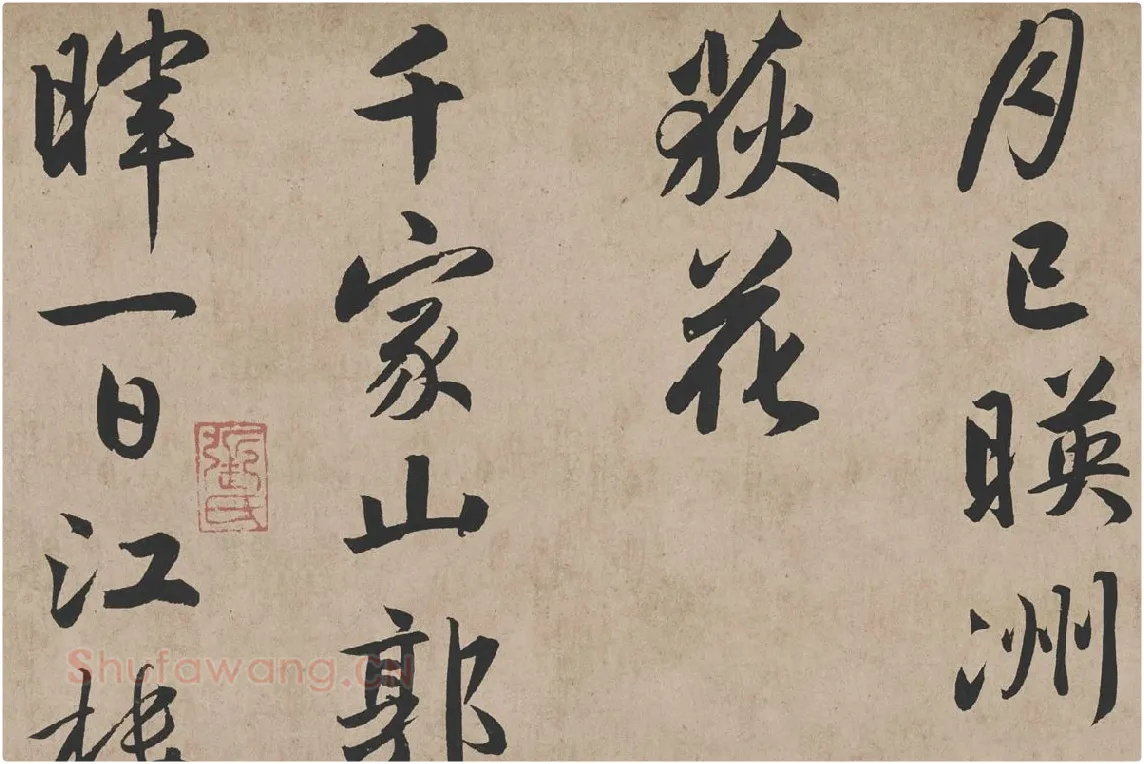 月已暎洲
荻花
千家山郭
暉一日江
Shufawang.CN